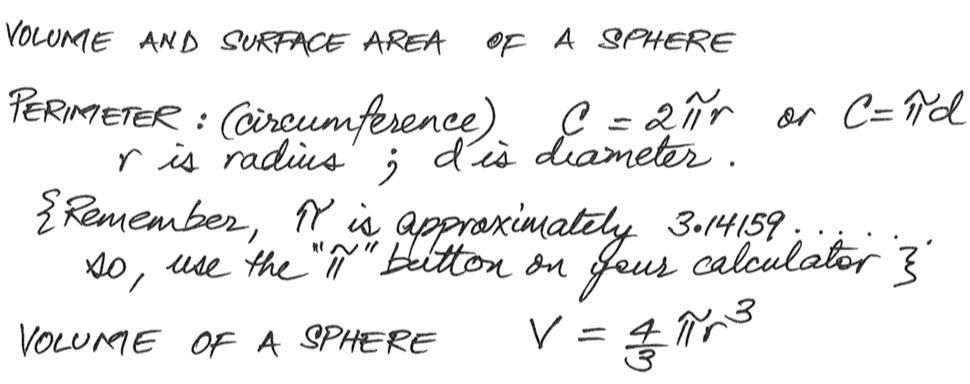 VOLUME AND SURFACE AREA OF A SPHERE
PERIMETER : (circumference) C = 2πr or C = πd
r is radius ; d is diameter .
{Remember, π is approximately 3.14159......
so, use the "π" button on your calculator }
VOLUME OF A SPHERE V = 4/3 πr³